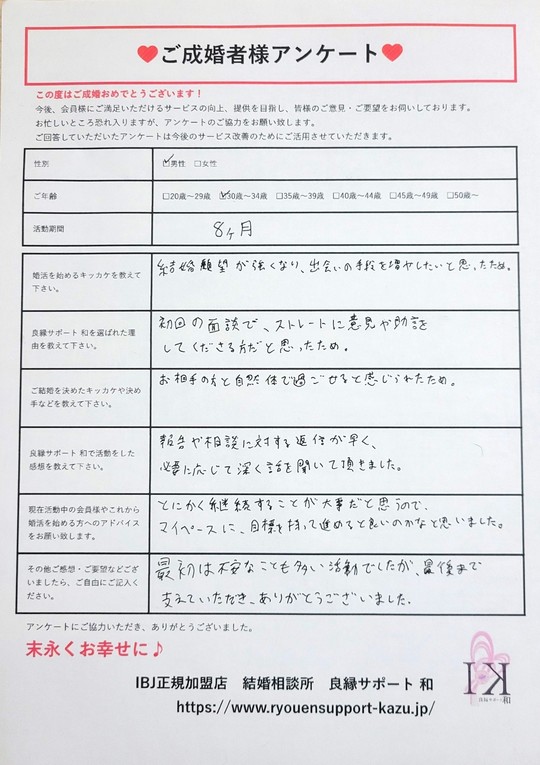 ♥ご成婚者様アンケート♥
この度はご成婚おめでとうございます！
今後、会員様にご満足いただけるサービスの向上、提供を目指し、皆様のご意見・ご要望をお伺いしております。
お忙しいところ恐れ入りますが、アンケートのご協力をお願い致します。
ご回答していただいたアンケートは今後のサービス改善のためにご活用させていただきます。
性別
☑男性 □女性
ご年齢
□20歳～29歳 ☑30歳～34歳 □35歳～39歳 □40歳～44歳 □45歳～49歳 □50歳～
活動期間
8ヶ月
婚活を始めるキッカケを教えて
下さい。
結婚願望が強くなり、出会いの手段を増やしたいと思ったため。
良縁サポート 和を選ばれた理
由を教えて下さい。
初回の面談で、ストレートに意見や助言を
してくださる方だと思ったため。
ご結婚を決めたキッカケや決め
手などを教えて下さい。
お相手の方と自然体で過ごせると感じられたため。
良縁サポート 和で活動をした
感想を教えて下さい。
報告や相談に対する返信が早く、
必要に応じて深く話を聞いて頂きました。
現在活動中の会員様やこれから
婚活を始める方へのアドバイス
をお願い致します。
とにかく継続することが大事だと思うので、
マイペースに、目標を持って進めると良いのかなと思いました。
その他ご感想・ご要望などござ
いましたら、ご自由にご記入く
ださい。
最初は不安なことも多い活動でしたが、最後まで
支えていただき、ありがとうございました。
アンケートにご協力いただき、ありがとうございました。
末永くお幸せに♪
IBJ正規加盟店 結婚相談所 良縁サポート 和
https://www.ryouensupport-kazu.jp/
良縁サポート 和